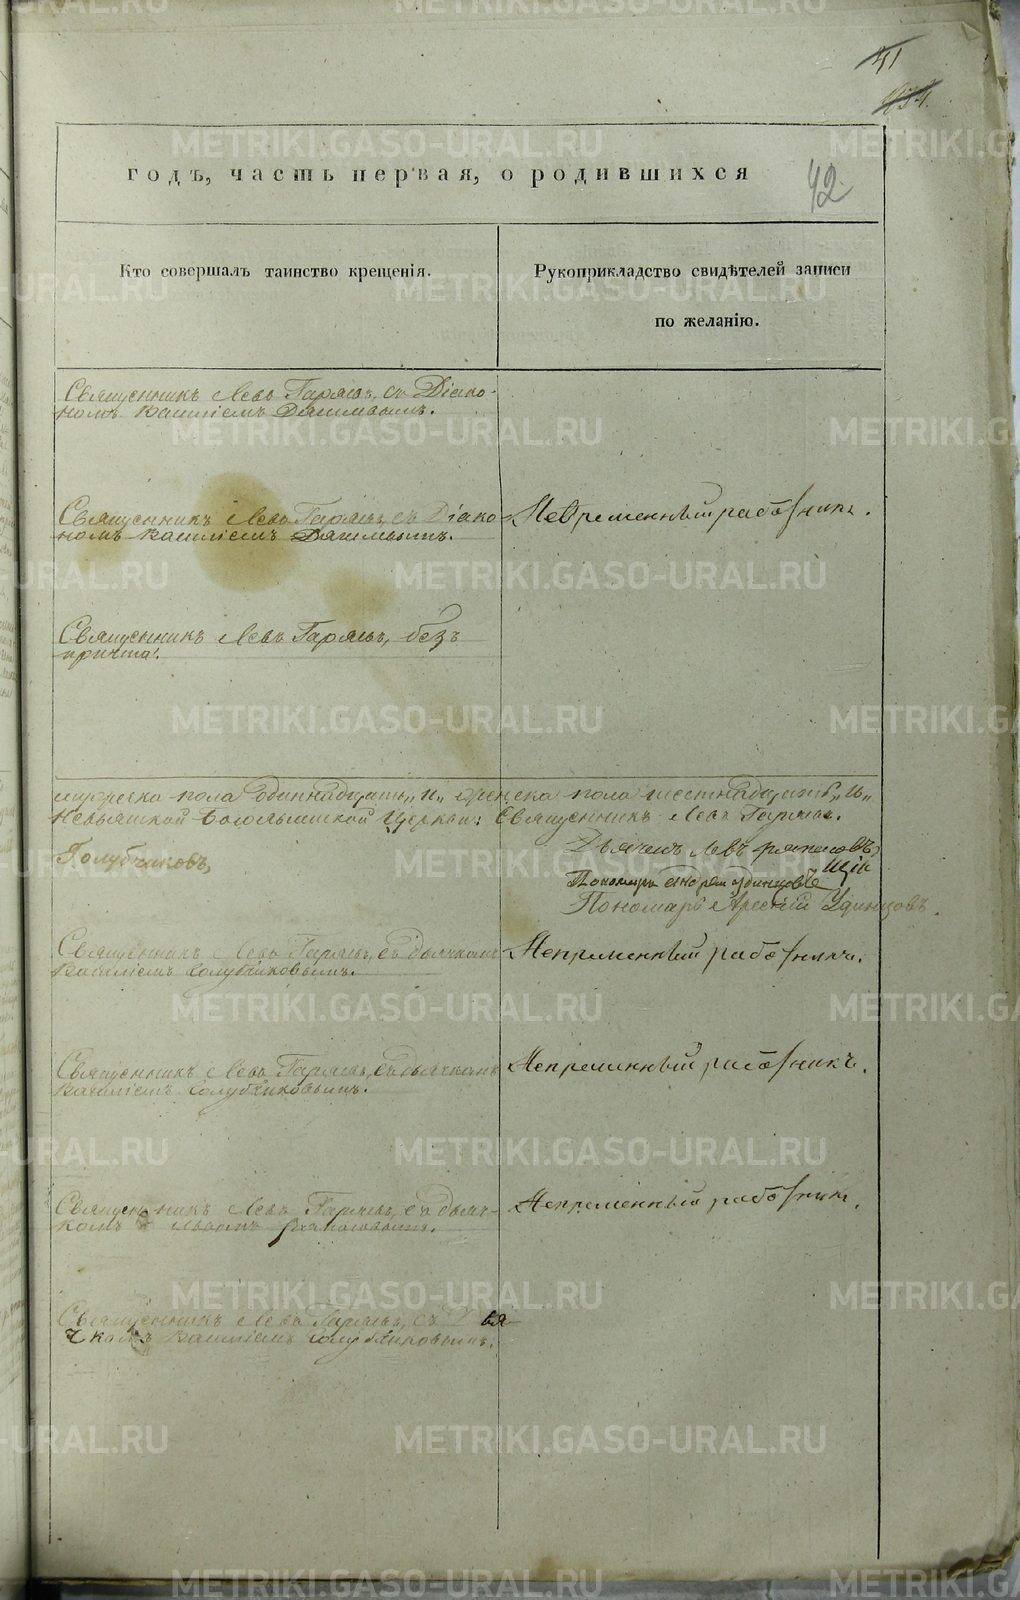 41
42
годъ, часть первая, о родившихся
Кто совершалъ таинство крещенія.
Рукоприкладство свидѣтелей записи
по желанію.
Священникъ Левъ Гаряевъ, съ Діако-
номъ Василіемъ
Священникъ Левъ Гаряевъ, съ Діако
номъ Василіемъ
работникъ.
Священникъ Левъ Гаряевъ, безъ
причта.
мужеска пола одиннадцать, и женска пола шестнадцать, и
Невьянской Богоявленской Церкви: Священникъ Левъ Гаряевъ.
Голубчиковъ,
Дьячекъ Левъ
Пономарь
Пономарь Арсеній Удинцовъ.
Священникъ Левъ Гаряевъ, съ дьячкомъ
Василіемъ Голубчиковымъ.
Непременный работникъ.
Священникъ Левъ Гаряевъ, съ дьячкомъ
Василіемъ Голубчиковымъ.
Непременный работникъ.
Священникъ Левъ Гаряевъ, съ дьяч-
комъ Львомъ
Непременный работникъ.
Священникъ Левъ Гаряевъ, съ Дья
чкомъ Василіемъ Голубчиковымъ.
METRIKI.GASO-URAL.RU